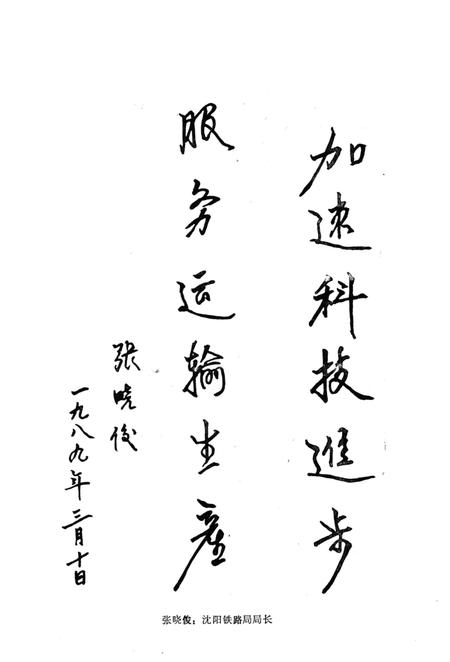 加速科技進步
服务运输生產
張曉俊
一九八九年三月十日
张晓俊：沈阳铁路局局长